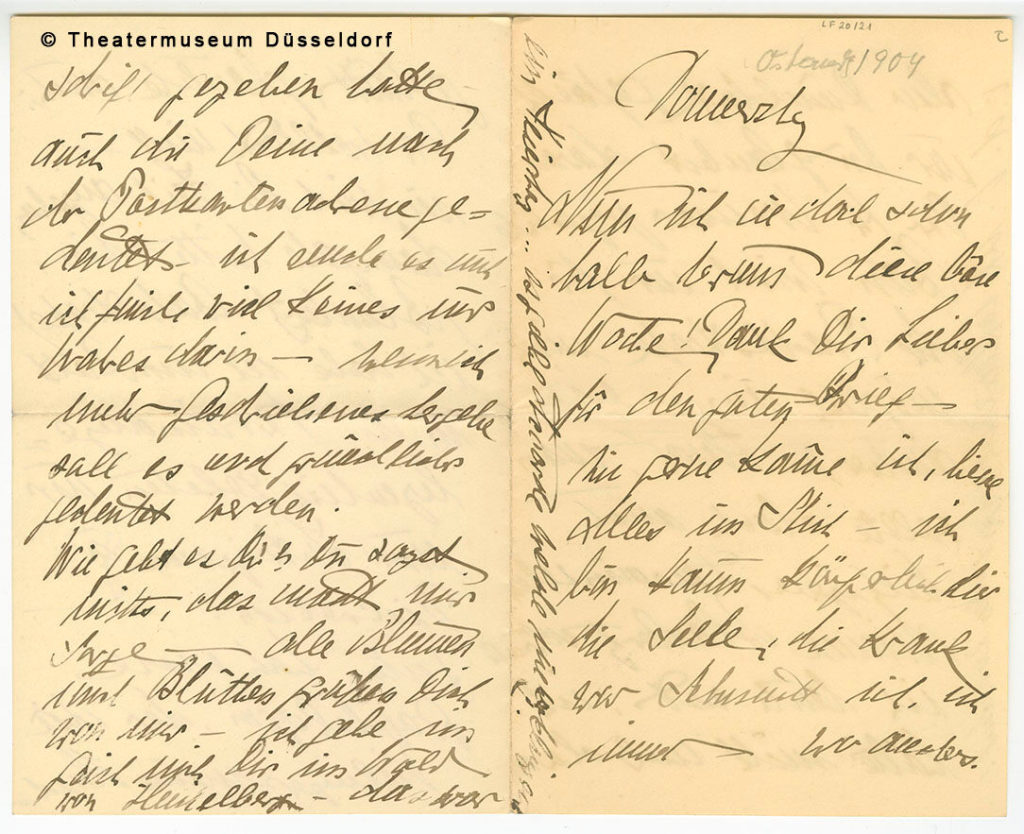 © Theatermuseum Düsseldorf
schrift gegeben hatte
auch die Deine nach
der Postkartenadresse ge=
deutet – ich sende es und
ich finde viel Feines und
Wahres darin — wenn ich
mehr Geschriebenes hergebe
soll es erst gründlicher
gedeutet werden.
Wie geht es Dir? Du sagst
nichts, das macht mir
Sorge — alle Blumen
und Blüthen grüßen Dich
von mir – ich gehe im
Geist mit Dir im Wald
von Heidelberg – das war
LF 20/21
2
1904
Donnerstag
Nun ist sie doch schon
halb herum diese böse
Woche! Dank Dir Lieber
für den guten Brief –
wie gerne käme ich, liesse
Alles im Stich – ich
bin kaum körperlich hier
die Seele, die krank
vor Sehnsucht ist, ist
immer – wo anders.